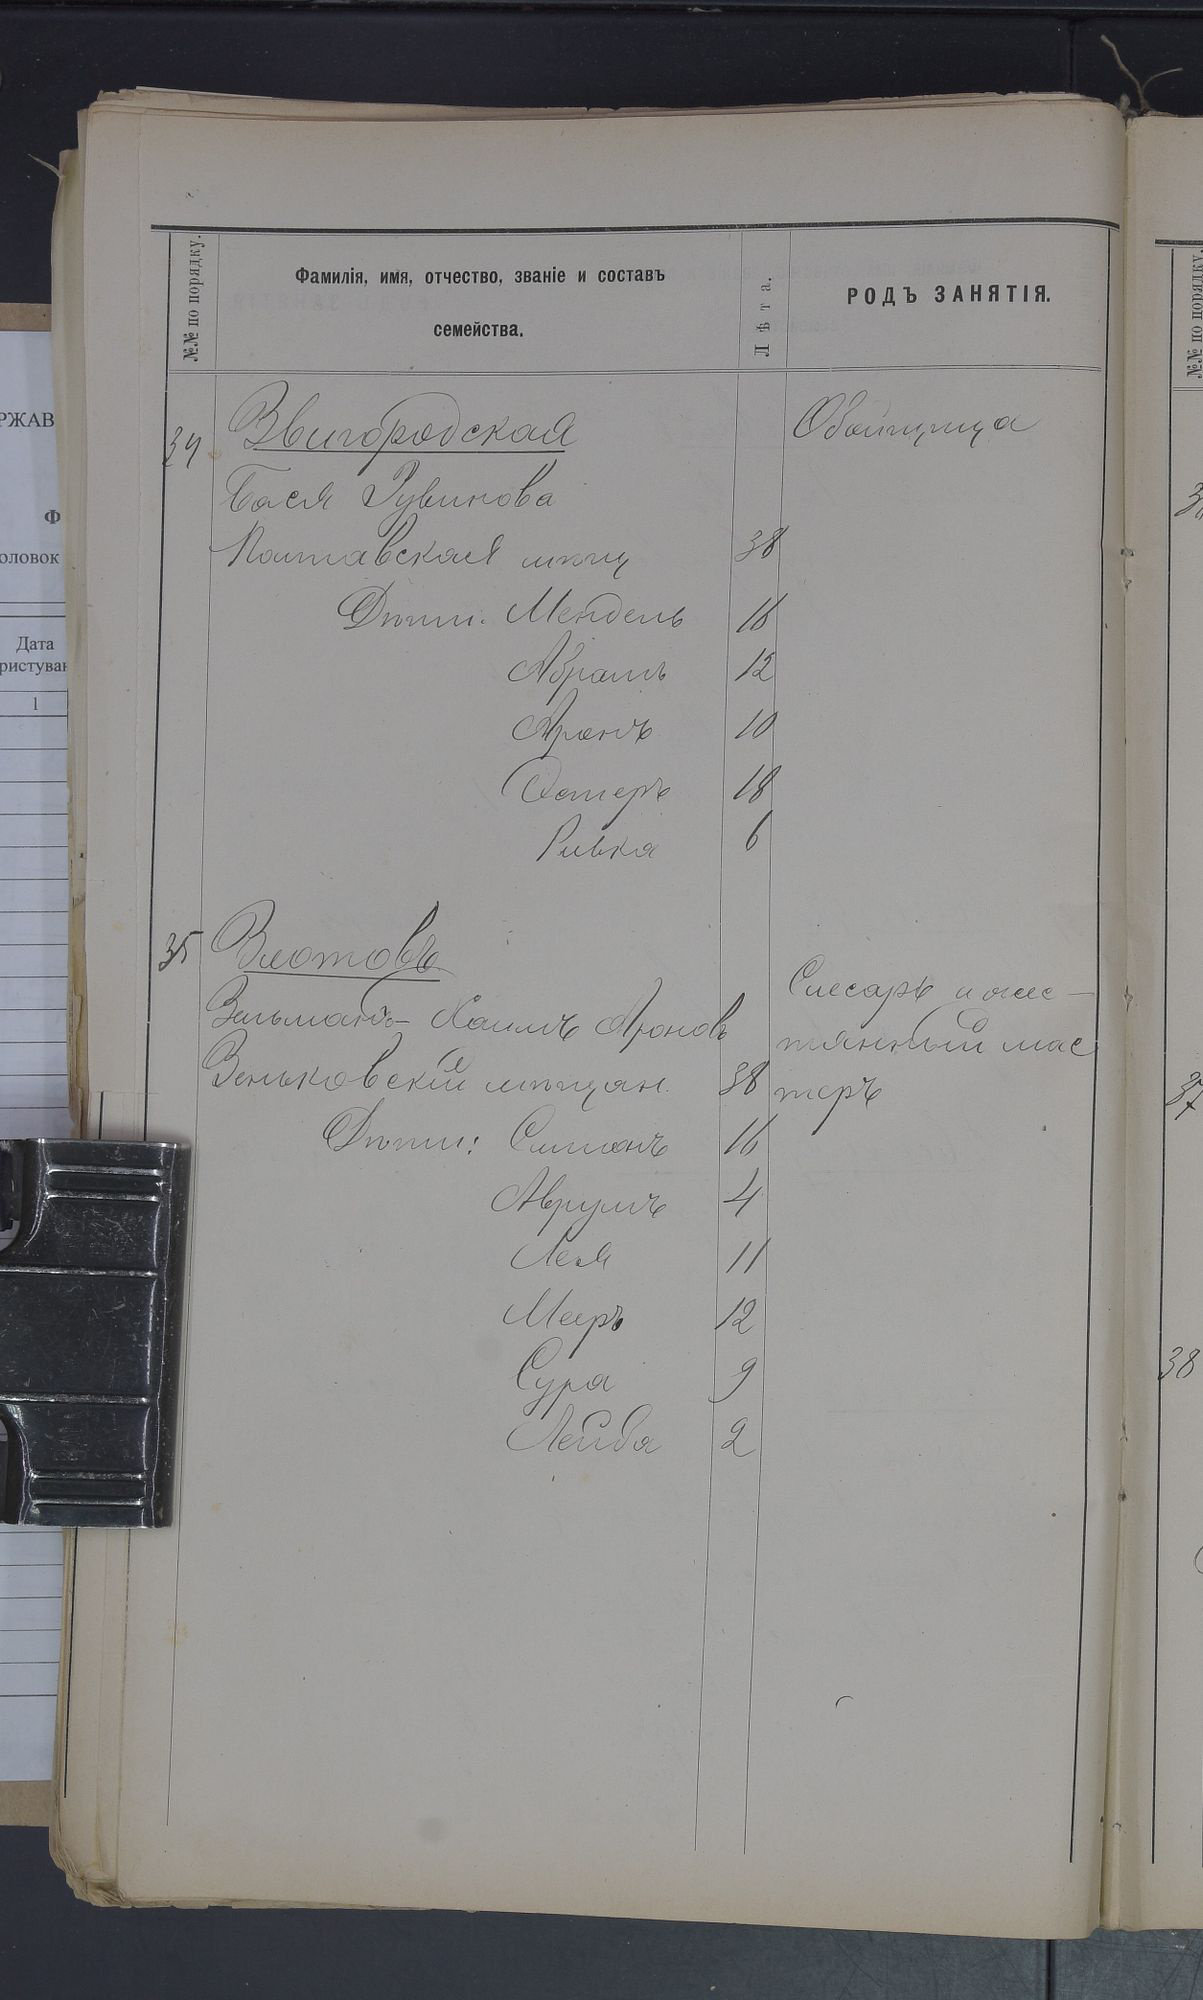 №№ по порядку.
Фамилія, имя, отчество, званіе и составъ
семейства.
Лѣта.
РОДЪ ЗАНЯТІЯ.
34 Звигородская Обойщица
Бася Рувинова
Полтавская мѣщ 38
Дѣти: Мендель 16
Абрамъ 12
Аронъ 10
Эстеръ 18
Ривка 6
35 Злотовъ
Зельманъ-Хаимъ Ароновъ
Зеньковскій мѣщан. 38
Слесарь и жес-
тянный мас
теръ
Дѣти: Симонъ 16
Аврумъ 4
Лея 11
Мееръ 12
Сура 9
Лейба 2
№№ по порядку.
37
38
РЖАВ
Ф
оловок
Дата
ристуван
1